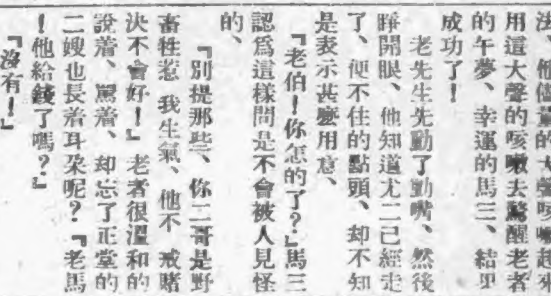 法、他儘量的大聲咳嗽起來
用這大聲的咳嗽去驚醒老者
的午夢、幸運的馬三、結果
成功了！
老先生先動了動嘴、然後
睜開眼、他知道尤二已經走
了、便不住的點頭、却不知
是表示甚麼用意、
『老伯！你怎的了？』馬三
認爲這樣問是不會被人見怪
的、
『別提那些、你二哥是野
畜牲惹 我生氣、他不 戒賭
決不會好！』老者很溫和的
說着、罵着、却忘了正堂的
二嫂也長着耳朶呢？『老馬
！他給錢了嗎？』
『沒有！』